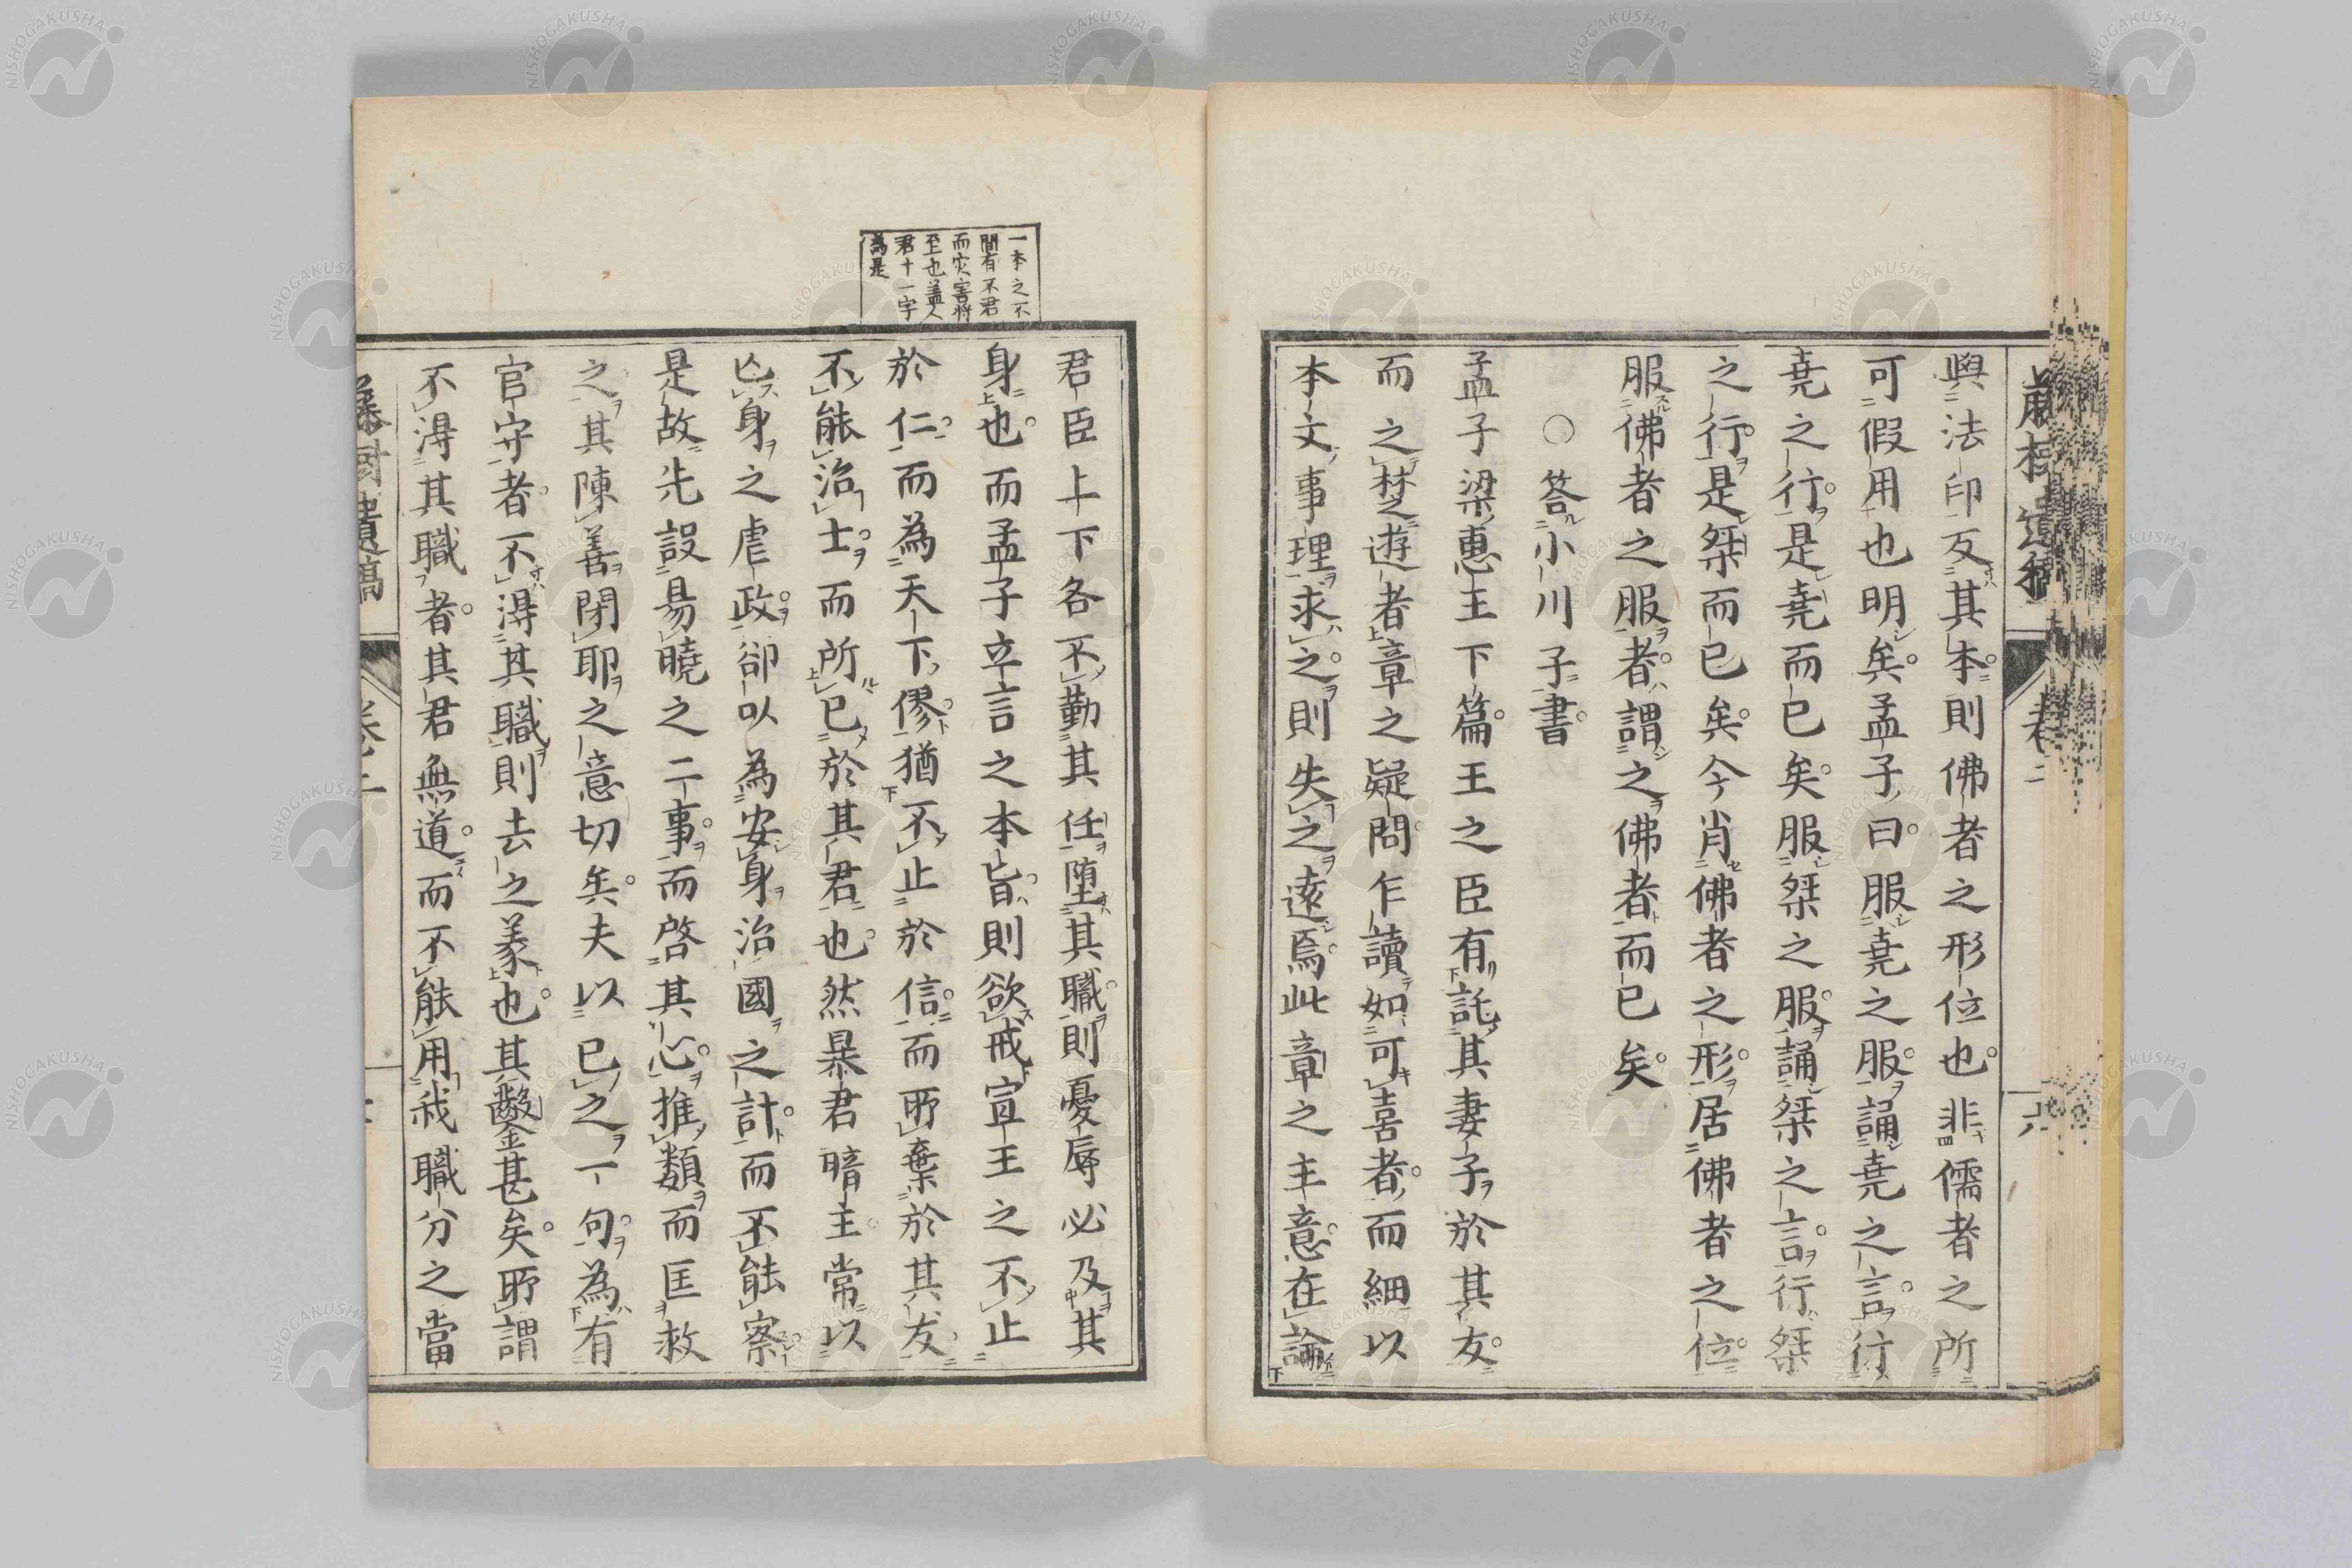 與法印反其本則佛者之形位也非儒者之所
可假用也明矣孟子曰服堯之服誦堯之言行
堯之行是堯而已矣服桀之服誦桀之言行桀
之行是桀而已矣今肖佛者之形居佛者之位
服佛者之服者謂之佛者而已矣
○答小川子書
孟子梁惠王下篇王之臣有託其妻子於其友
而之楚遊者章之疑問乍讀如可喜者而細以
本文事理求之則失之遠焉此章之主意在論
一本之不
間有不君
而災害將
至也蓋人
君十一字
為是
君臣上下各不勤其任墮其職則憂辱必及其
身也而孟子立言之本旨則欲戒宣王之不止
於仁而為天下僇猶不止於信而所棄於其友
不能治士而所已於其君也然暴君暗主常以
亡身之虐政卻以為安身治國之計而不能察
是故先設易曉之二事而啓其心推類而匡救
之其陳善閉邪之意切矣夫以已之一句為有
官守者不得其職則去之義也其鑿甚矣所謂
不得其職者其君無道而不能用我職分之當
藤樹遺稿 卷二
NISHOGAKUSHA